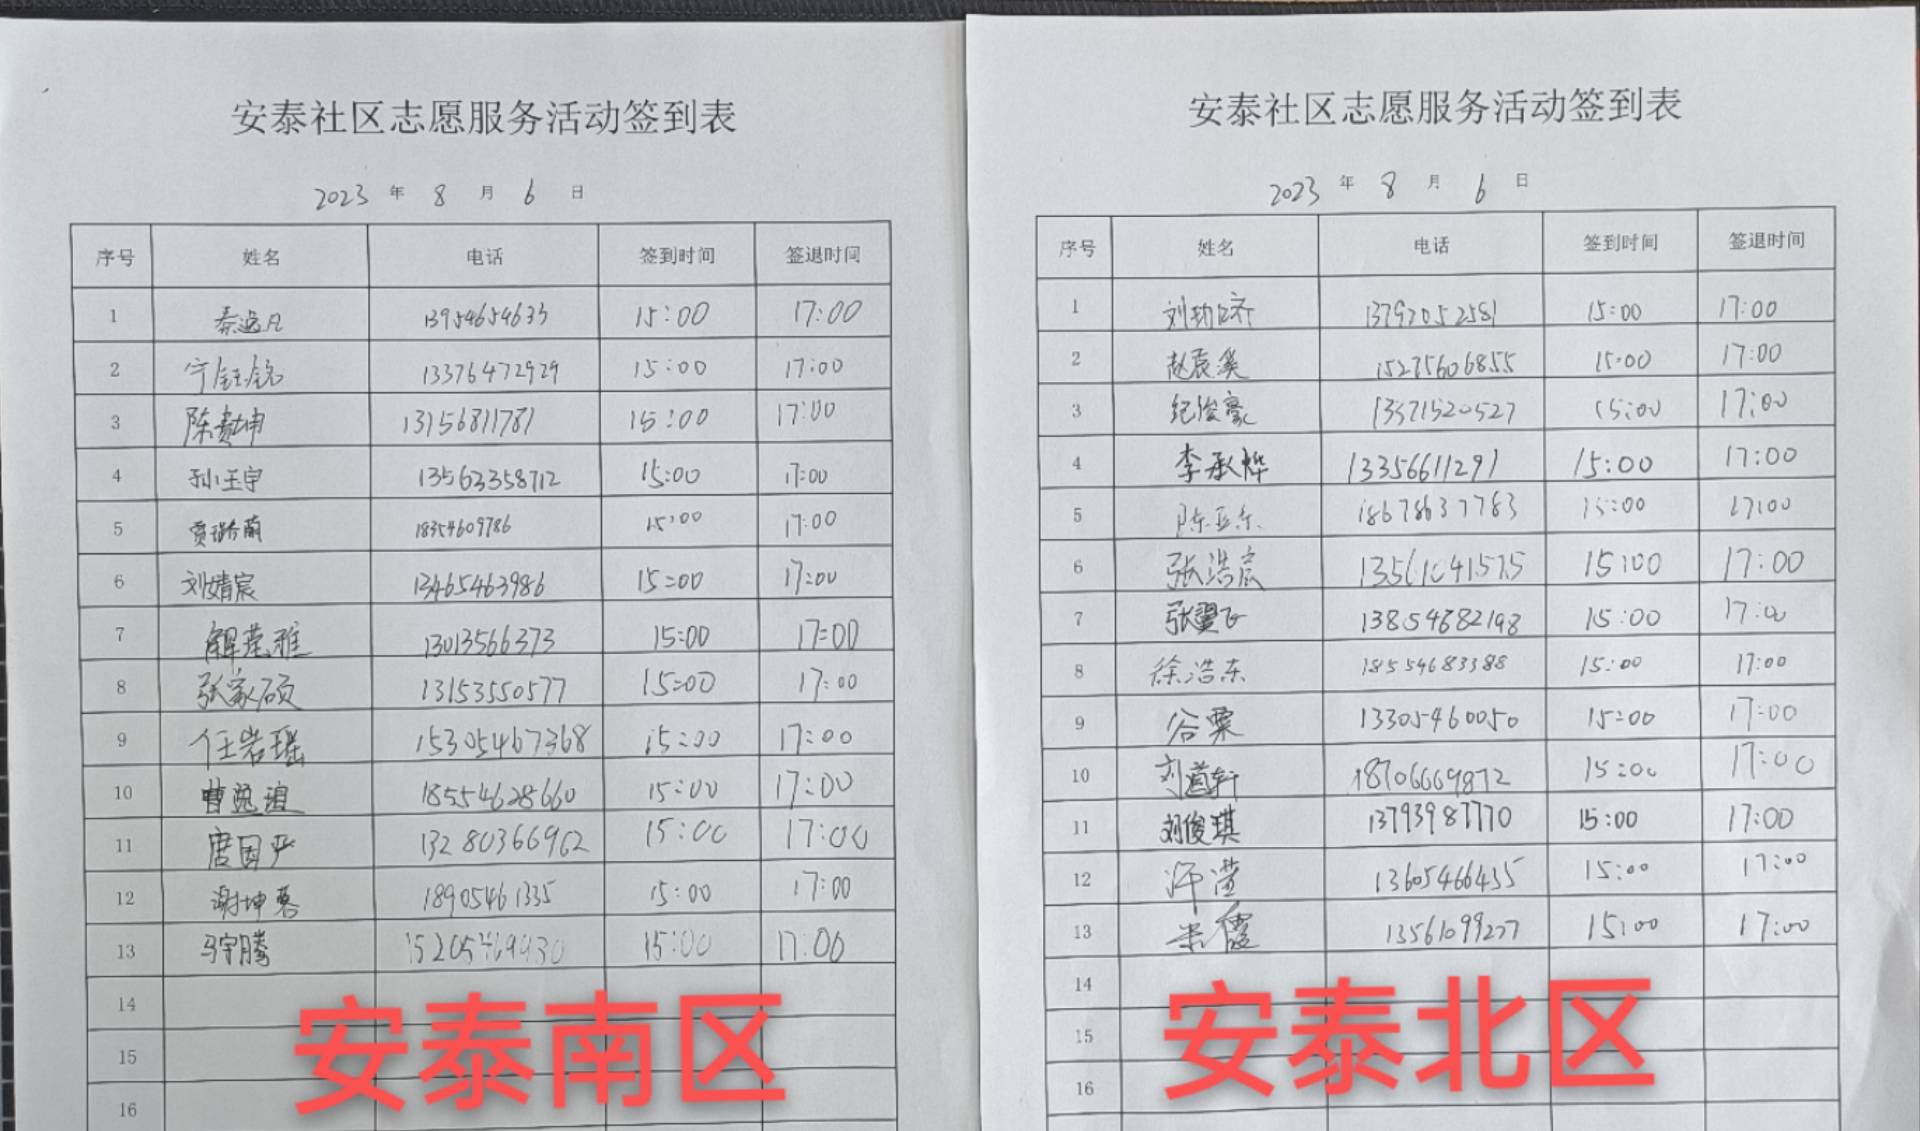 安泰社区志愿服务活动签到表
2023 年 8 月 6 日
序号 姓名 电话 签到时间 签退时间
1 秦逸凡 13954654633 15:00 17:00
2 宁钰铭 13376472929 15:00 17:00
3 陈贵坤 13156811781 15:00 17:00
4 孙玉宇 13563358712 15:00 17:00
5 贾璐萌 18354609786 15:00 17:00
6 刘婧宸 13465463986 15:00 17:00
7 解莹雅 13013566373 15:00 17:00
8 张家硕 13153550577 15:00 17:00
9 任岩瑶 15305467368 15:00 17:00
10 曹逸 18554628660 15:00 17:00
11 唐国严 13280366962 15:00 17:00
12 谢坤蓉 18905461335 15:00 17:00
13 马宇腾 15205469930 15:00 17:00
14
15
16
安泰南区
安泰社区志愿服务活动签到表
2023 年 8 月 6 日
序号 姓名 电话 签到时间 签退时间
1 刘 13792052581 15:00 17:00
2 赵宸溪 15275606855 15:00 17:00
3 纪俊豪 13371520527 15:00 17:00
4 李承烨 13356611291 15:00 17:00
5 陈亚东 18678637783 15:00 17:00
6 张浩宸 13561041575 15:00 17:00
7 张翼飞 13854682198 15:00 17:00
8 徐浩东 18554683388 15:00 17:00
9 谷粟 13305460050 15:00 17:00
10 刘道轩 18706669872 15:00 17:00
11 刘俊琪 13793987770 15:00 17:00
12 13605466435 15:00 17:00
13 13561099277 15:00 17:00
14
15
16
安泰北区